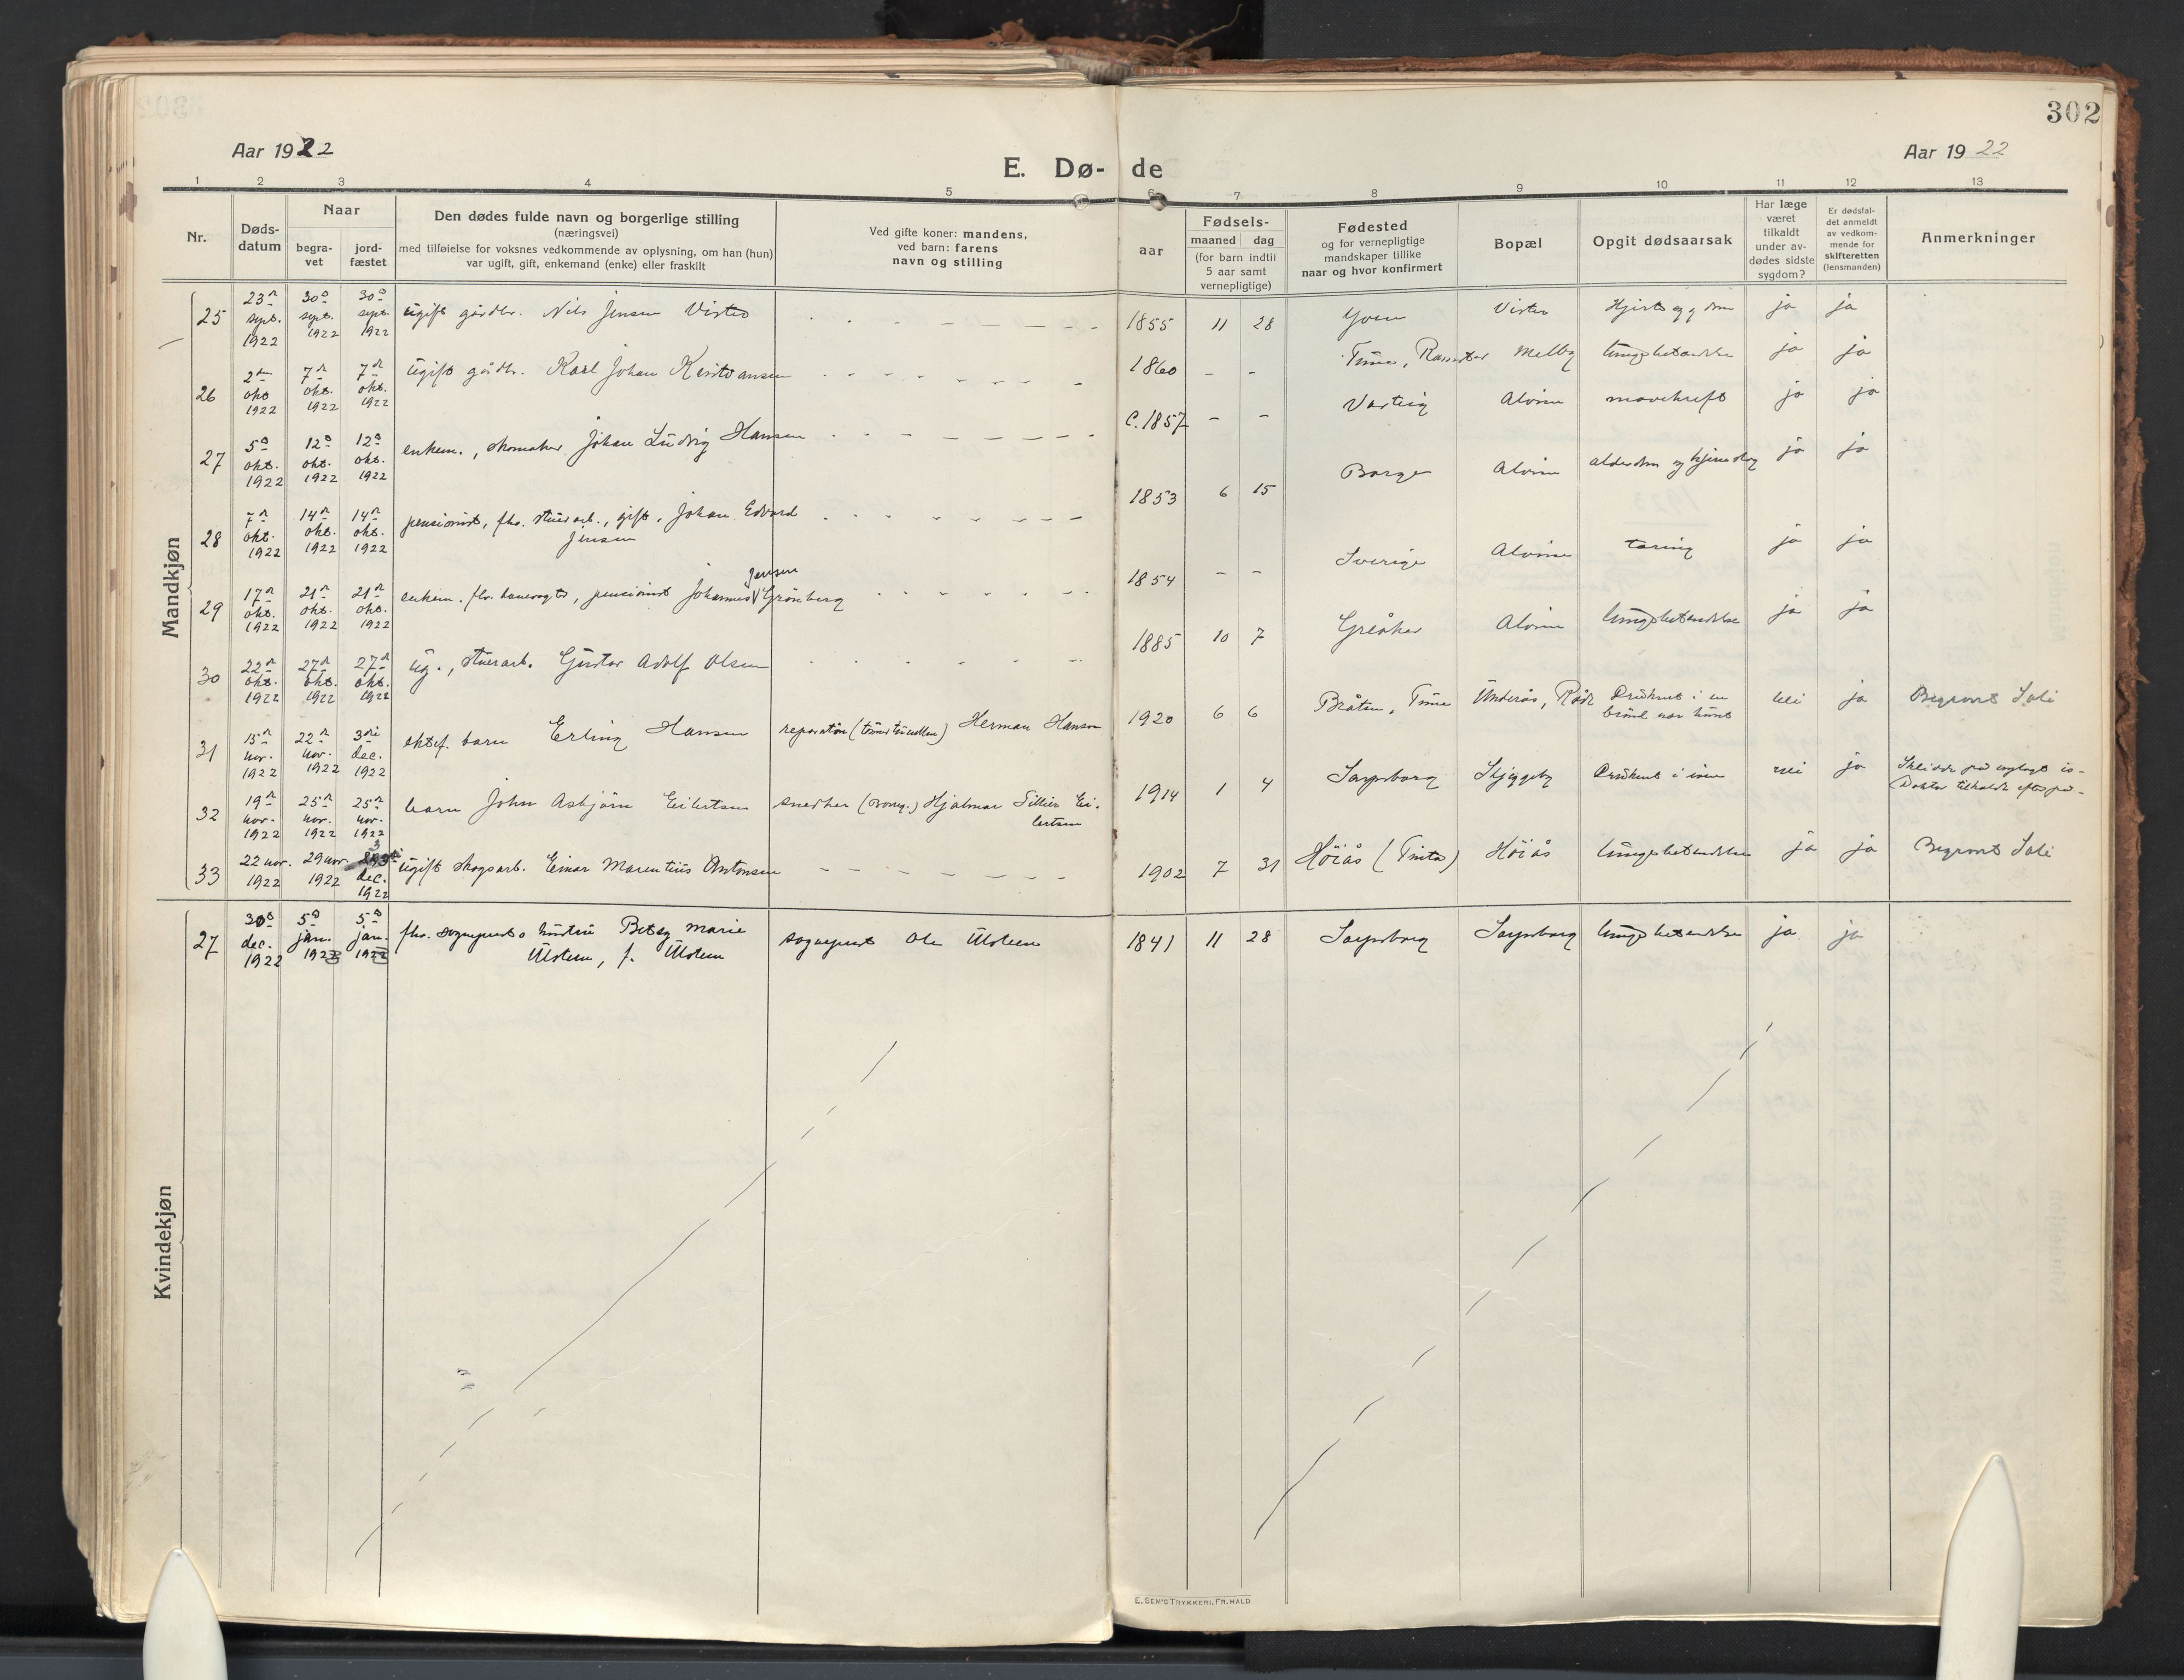 302
Aar 1922
E. Dø-de
Aar 1922
1 2 3 4 5 6 7 8 9 10 11 12 13
Nr.
Døds-
datum
Naar
begra-
vet
jord-
fæstet
Den dødes fulde navn og borgerlige stilling
(næringsvei)
med tilføielse for voksnes vedkommende av oplysning, om han (hun)
var ugift, gift, enkemand (enke) eller fraskilt
Ved gifte koner: mandens,
ved barn: farens
navn og stilling
aar
Fødsels-
maaned dag
(for barn indtil
5 aar samt
vernepligtige)
Fødested
og for vernepligtige
mandskaper tillike
naar og hvor konfirmert
Bopæl
Opgit dødsaarsak
Har læge
været
tilkaldt
under av-
dødes sidste
sygdom?
Er dødsfal-
det anmeldt
av vedkom-
mende for
skifteretten
(lensmanden)
Anmerkninger
Mandkjøn
25 23 sept. 1922 30 sept. 1922 30 sept. 1922 ugift gårdbr. Nils Jensen Visted 1855 11 28 Visted ja ja
26 2 okt 1922 7 okt. 1922 7 okt. 1922 ugift gårdbr. Karl Johan Kristiansen 1860 - - Tune, Melby lungebetændelse ja ja
27 5 okt. 1922 12 okt. 1922 12 okt. 1922 enkem., skomaker Johan Ludvig Hansen C. 1857 - - Varteig Alvim mavekreft ja ja
28 7 okt. 1922 14 okt. 1922 14 okt. 1922 pensionist, fhv. stuerarb., gift, Johan Edvard
Jensen 1853 6 15 Borge Alvim alderdom og hjerneslag ja ja
29 17 okt. 1922 21 okt. 1922 21 okt. 1922 enkem. fhv. banevogter, pensionist Johannes Jensen Grönberg 1854 - - Sverige Alvim tæring ja ja
30 22 okt. 1922 27 okt. 1922 27 okt. 1922 ug., stuerarb. Gustav Adolf Olsen 1885 10 7 Greåker Alvim lungebetændelse ja ja
31 15 nov. 1922 22 nov. 1922 3 dec. 1922 ektef. barn Erling Hansen reparatör Herman Hansen 1920 6 6 Bråten, Tune Underås, Råde Druknet i en
brönd nær huset nei ja Begravet Soli
32 19 nov. 1922 25 nov. 1922 25 nov. 1922 barn John Asbjörn Eilertsen snedker Hjalmar Eilertsen 1914 1 4 Sarpsborg Skjeggeby Druknet i nei ja
33 22 nov. 1922 29 nov. 1922 3 dec. 1922 ugift skogsarb. Einar Marentius Antonsen 1902 7 31 Höiås (Tune) Höiås lungebetændelse ja ja Begravet Soli
Kvindekjøn
27 30 dec. 1922 5 jan. 1923 5 jan. 1923 fhv. sogneprests hustru Betsy Marie
Ulsteen, f. Ulsteen sogneprest Ole Ulsteen 1841 11 28 Sarpsborg Sarpsborg lungebetændelse ja ja
E. SEM'S TRYKKERI, FR.HALD